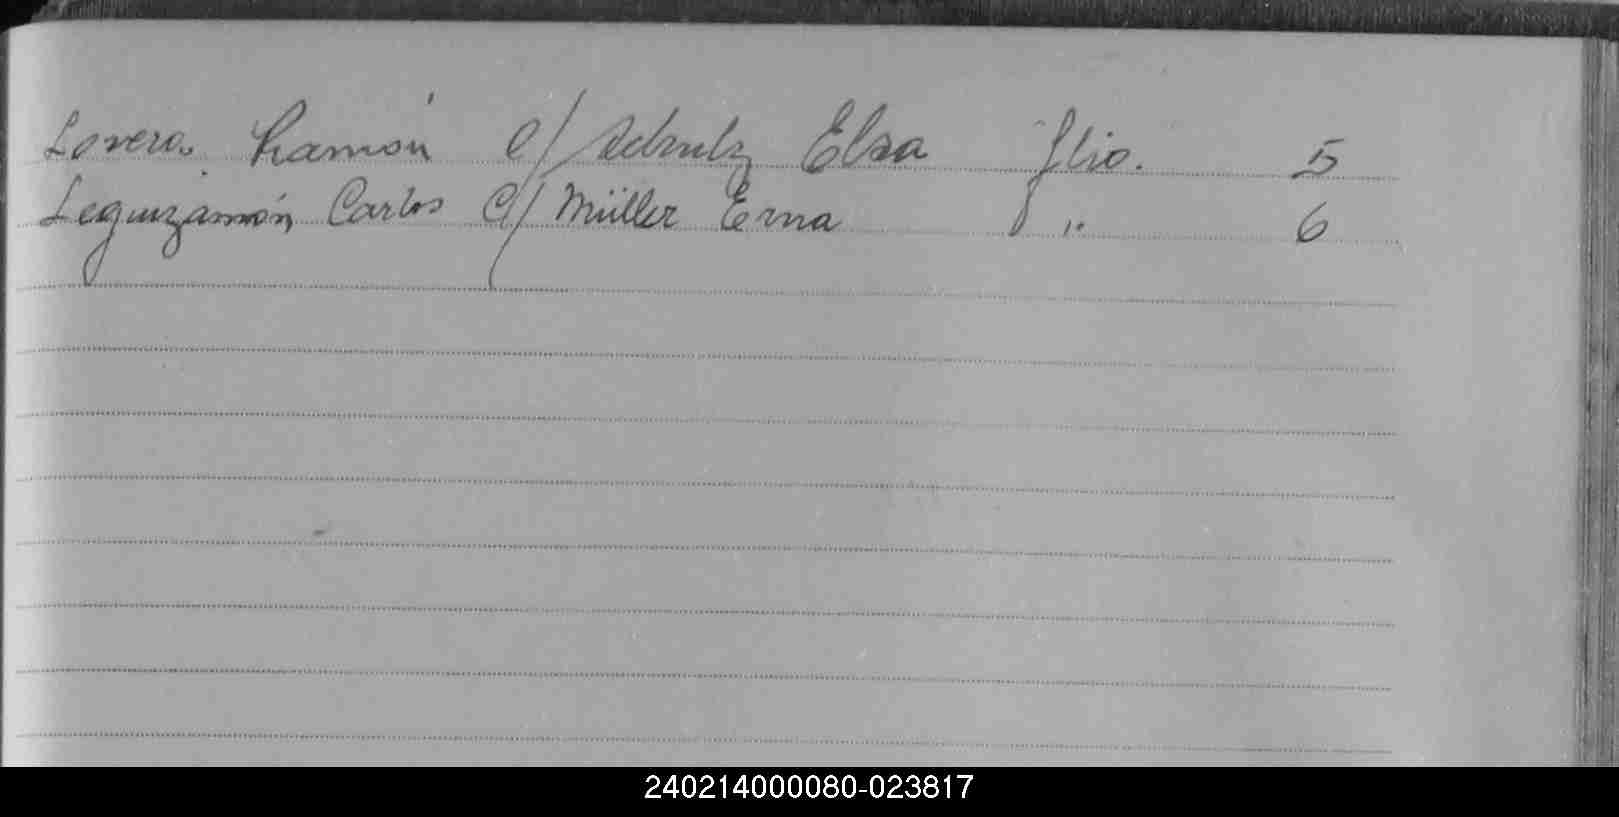 Lovera Ramón c/ Schulz Elsa flio. 5
Leguizamón Carlos C/ Müller Erna " 6
240214000080-023817